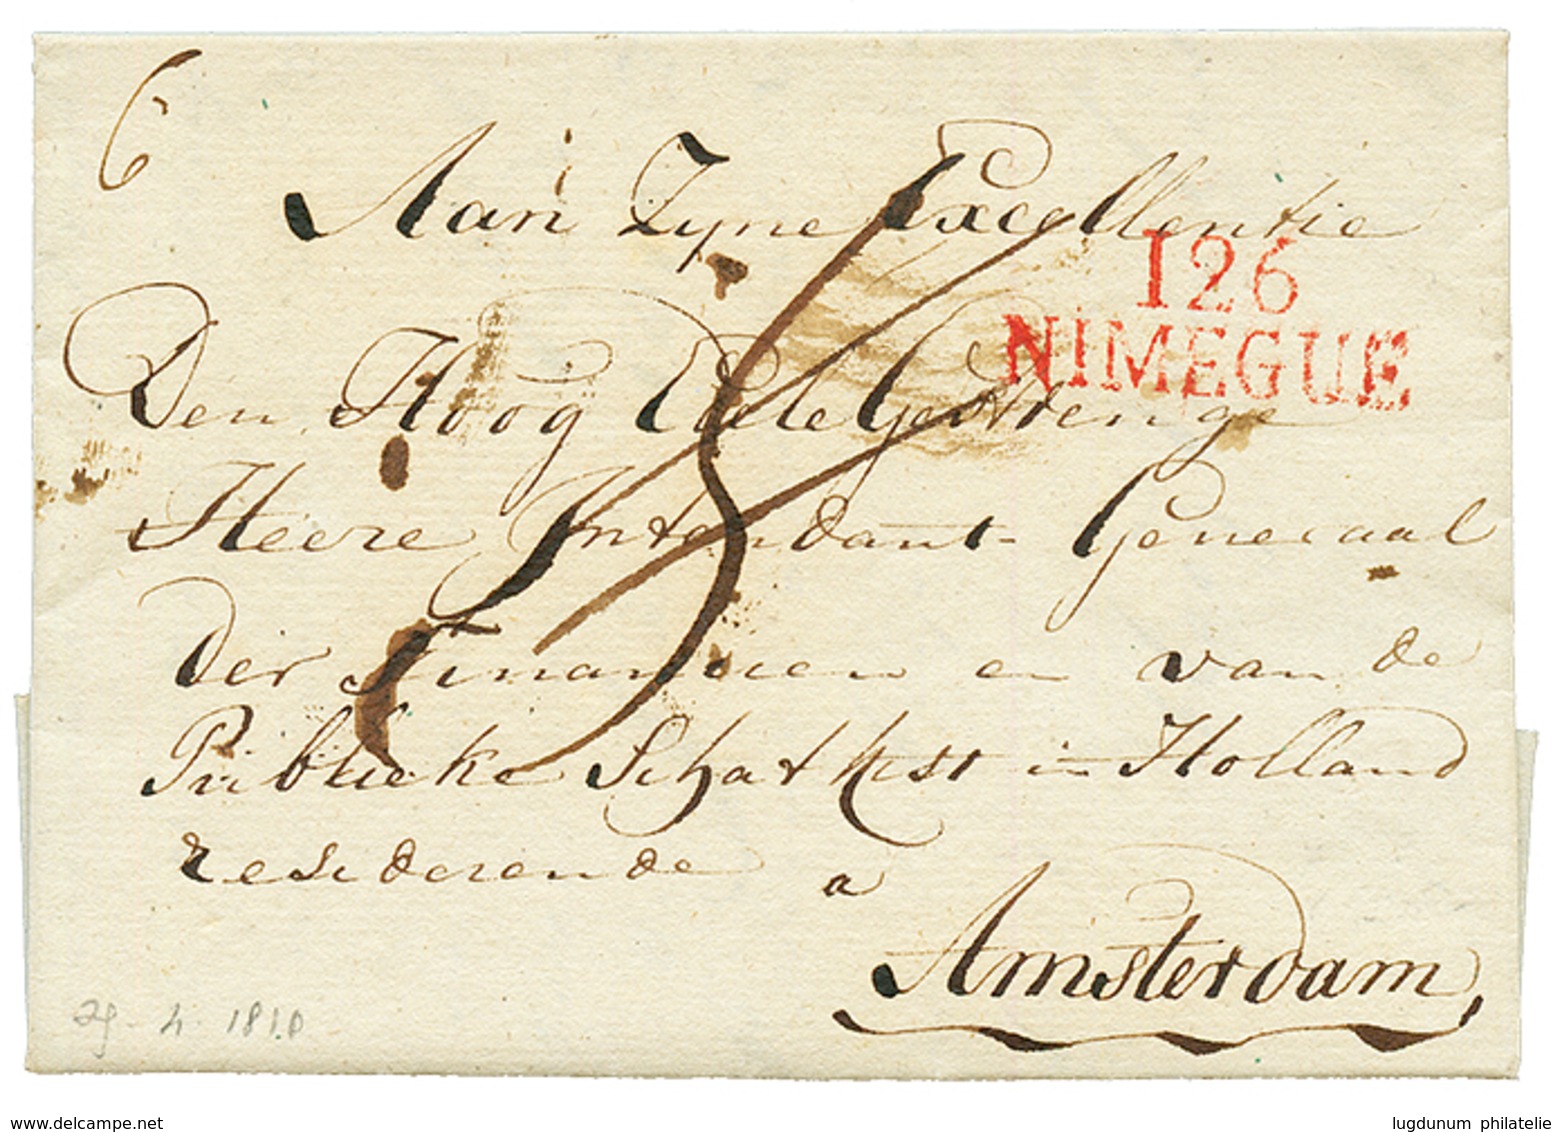 6
Aan Zyne Excellentie
126
NIMEGUE
Den Hoog Edele Gestrenge
Heere Intendant Generaal
der Finantien en van de
Publieke Schatkist in Holland
residerende a
Amsterdam
29 - 4 - 1810
delcampe.net
lugdunum philatelie